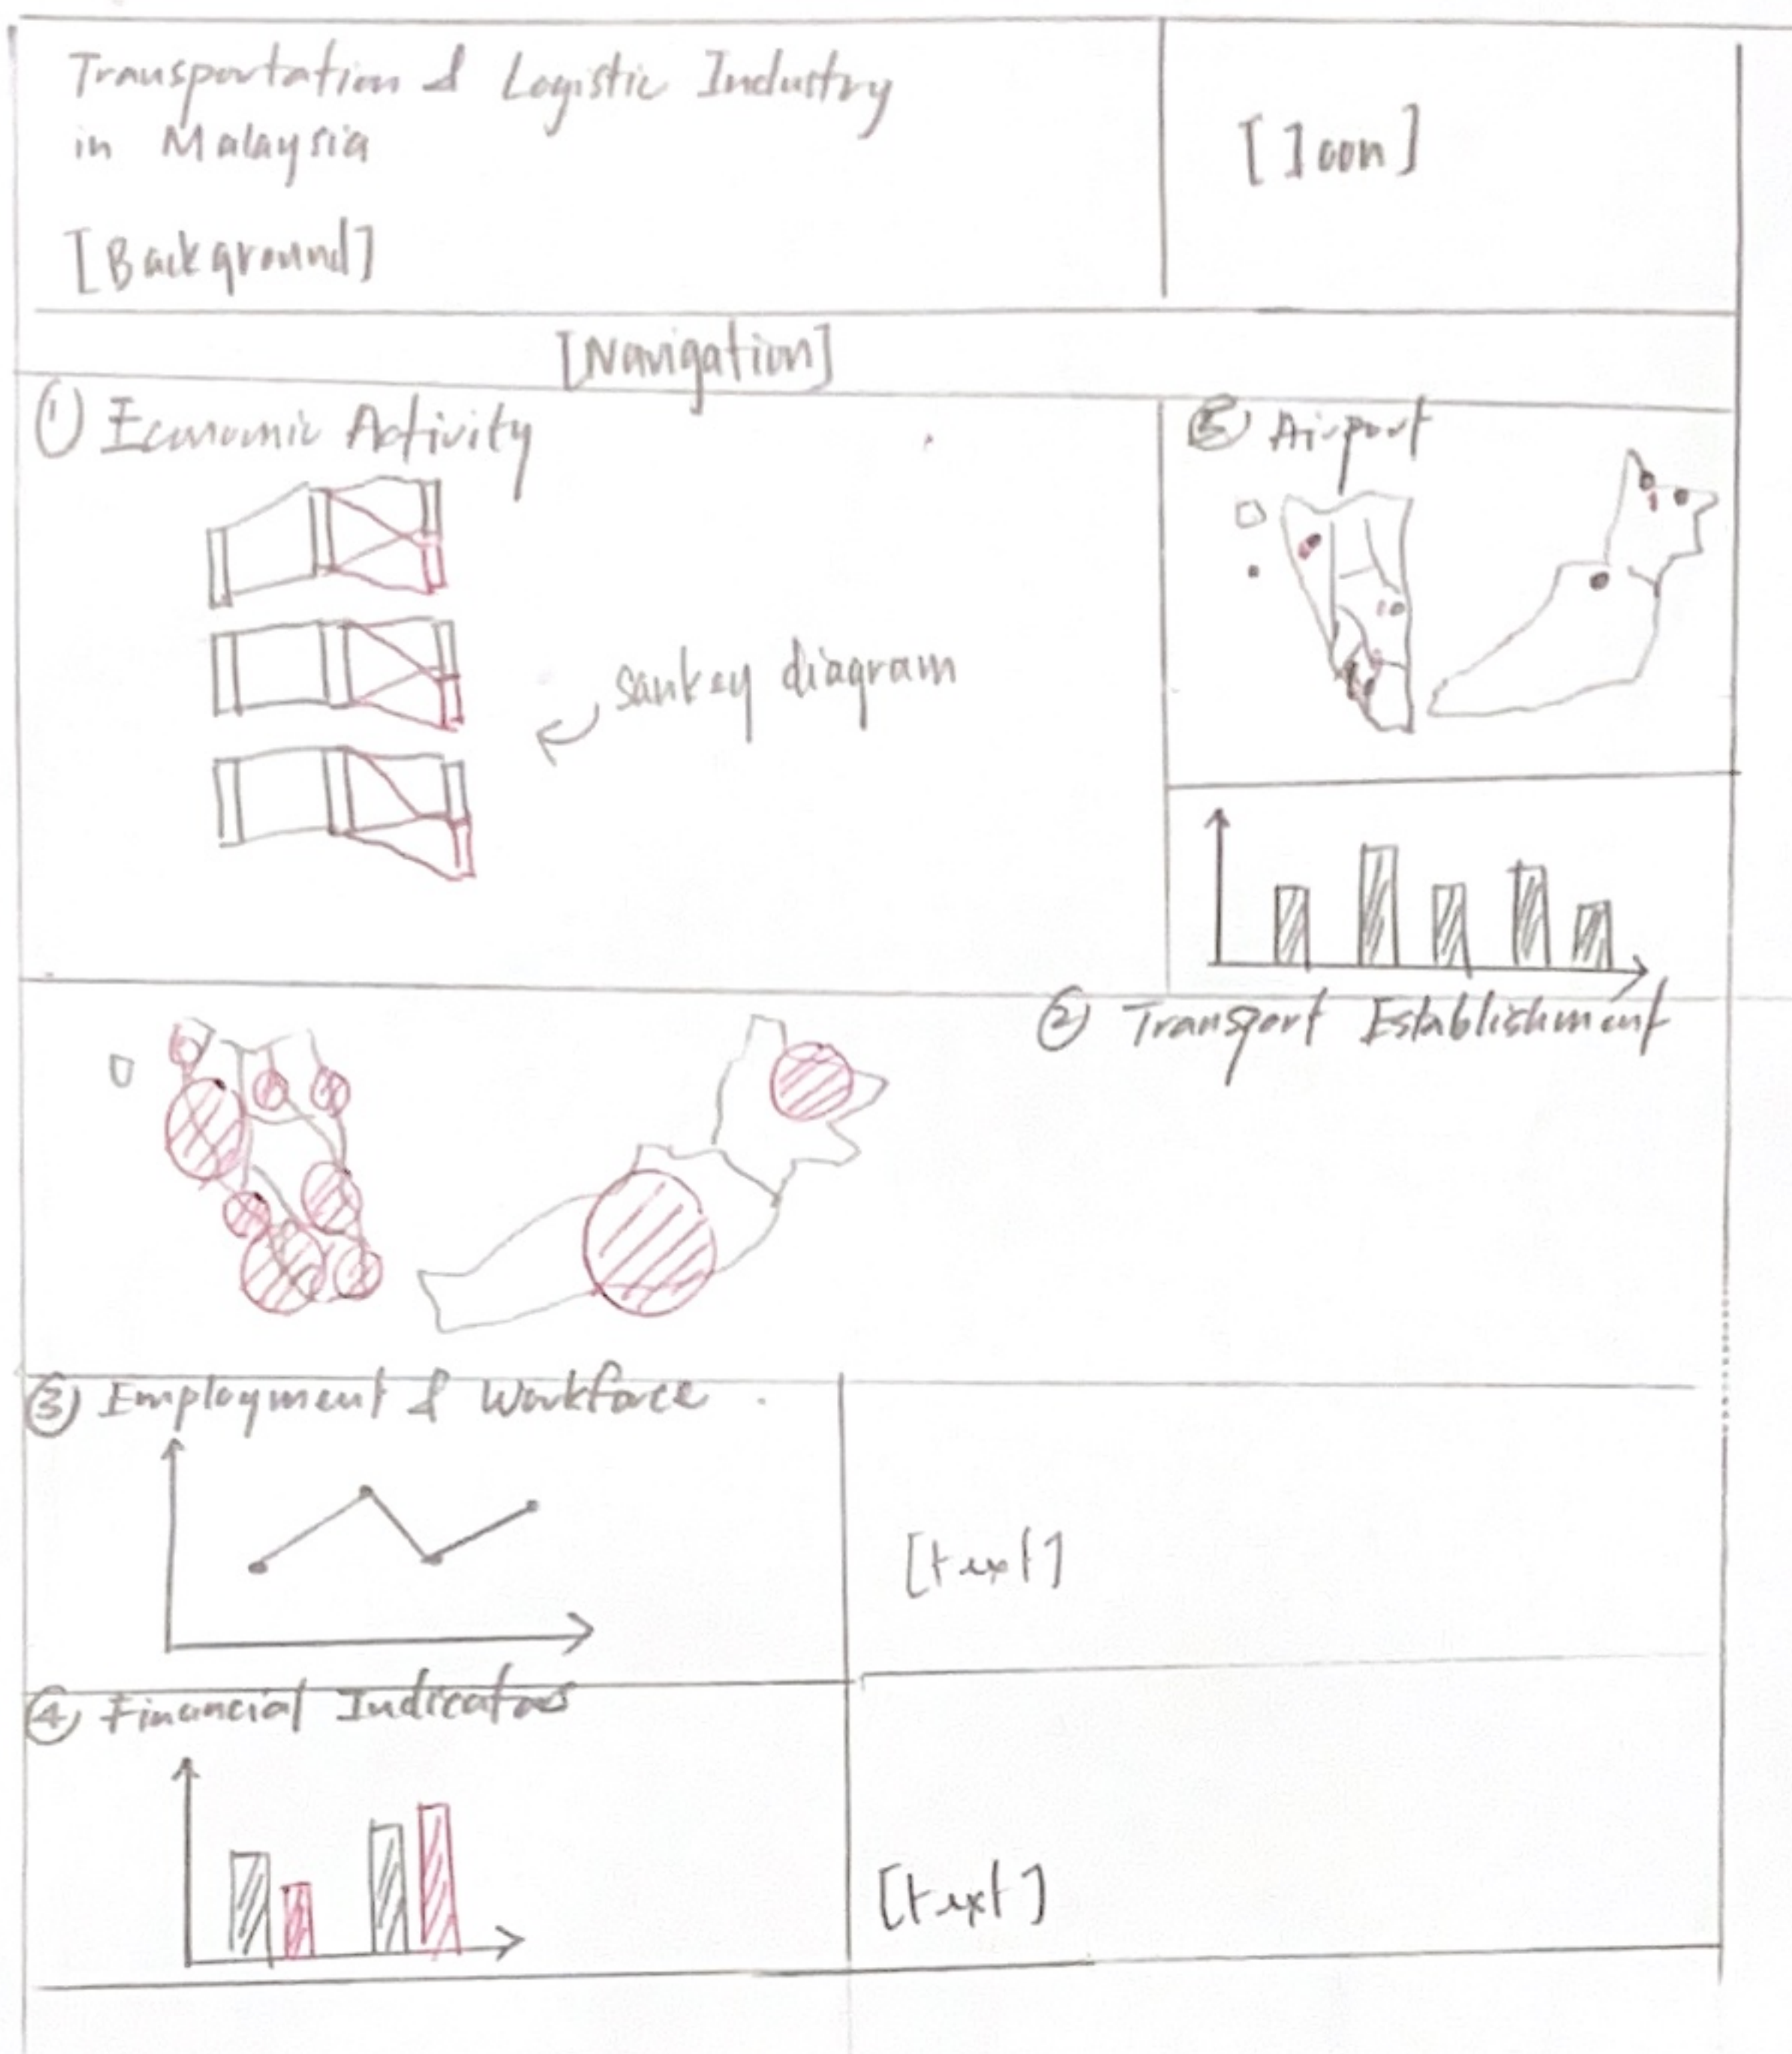 Transportation & Logistic Industry
in Malaysia
[Background]
[Icon]
[Navigation]
① Economic Activity
sankey diagram
⑤ Airport
② Transport Establishment
③ Employment & Workforce
[text]
④ Financial Indicators
[text]